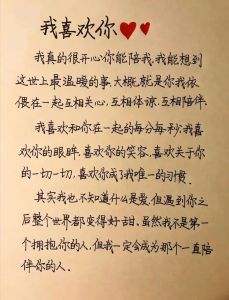 我喜欢你
我真的很开心你能陪我,我能想到
这世上最温暖的事,大概就是你我依
偎在一起互相关心,互相体谅,互相陪伴.
我喜欢和你在一起的每分每秒,我喜
欢你的眼眸,喜欢你的笑容,喜欢关于你
的一切一切,喜欢你成了我唯一的习惯.
其实我也不知道什么是爱,但遇到你之
后整个世界都变得好甜,虽然我不是第一
个拥抱你的人,但我一定会成为那个一直陪
伴你的人.